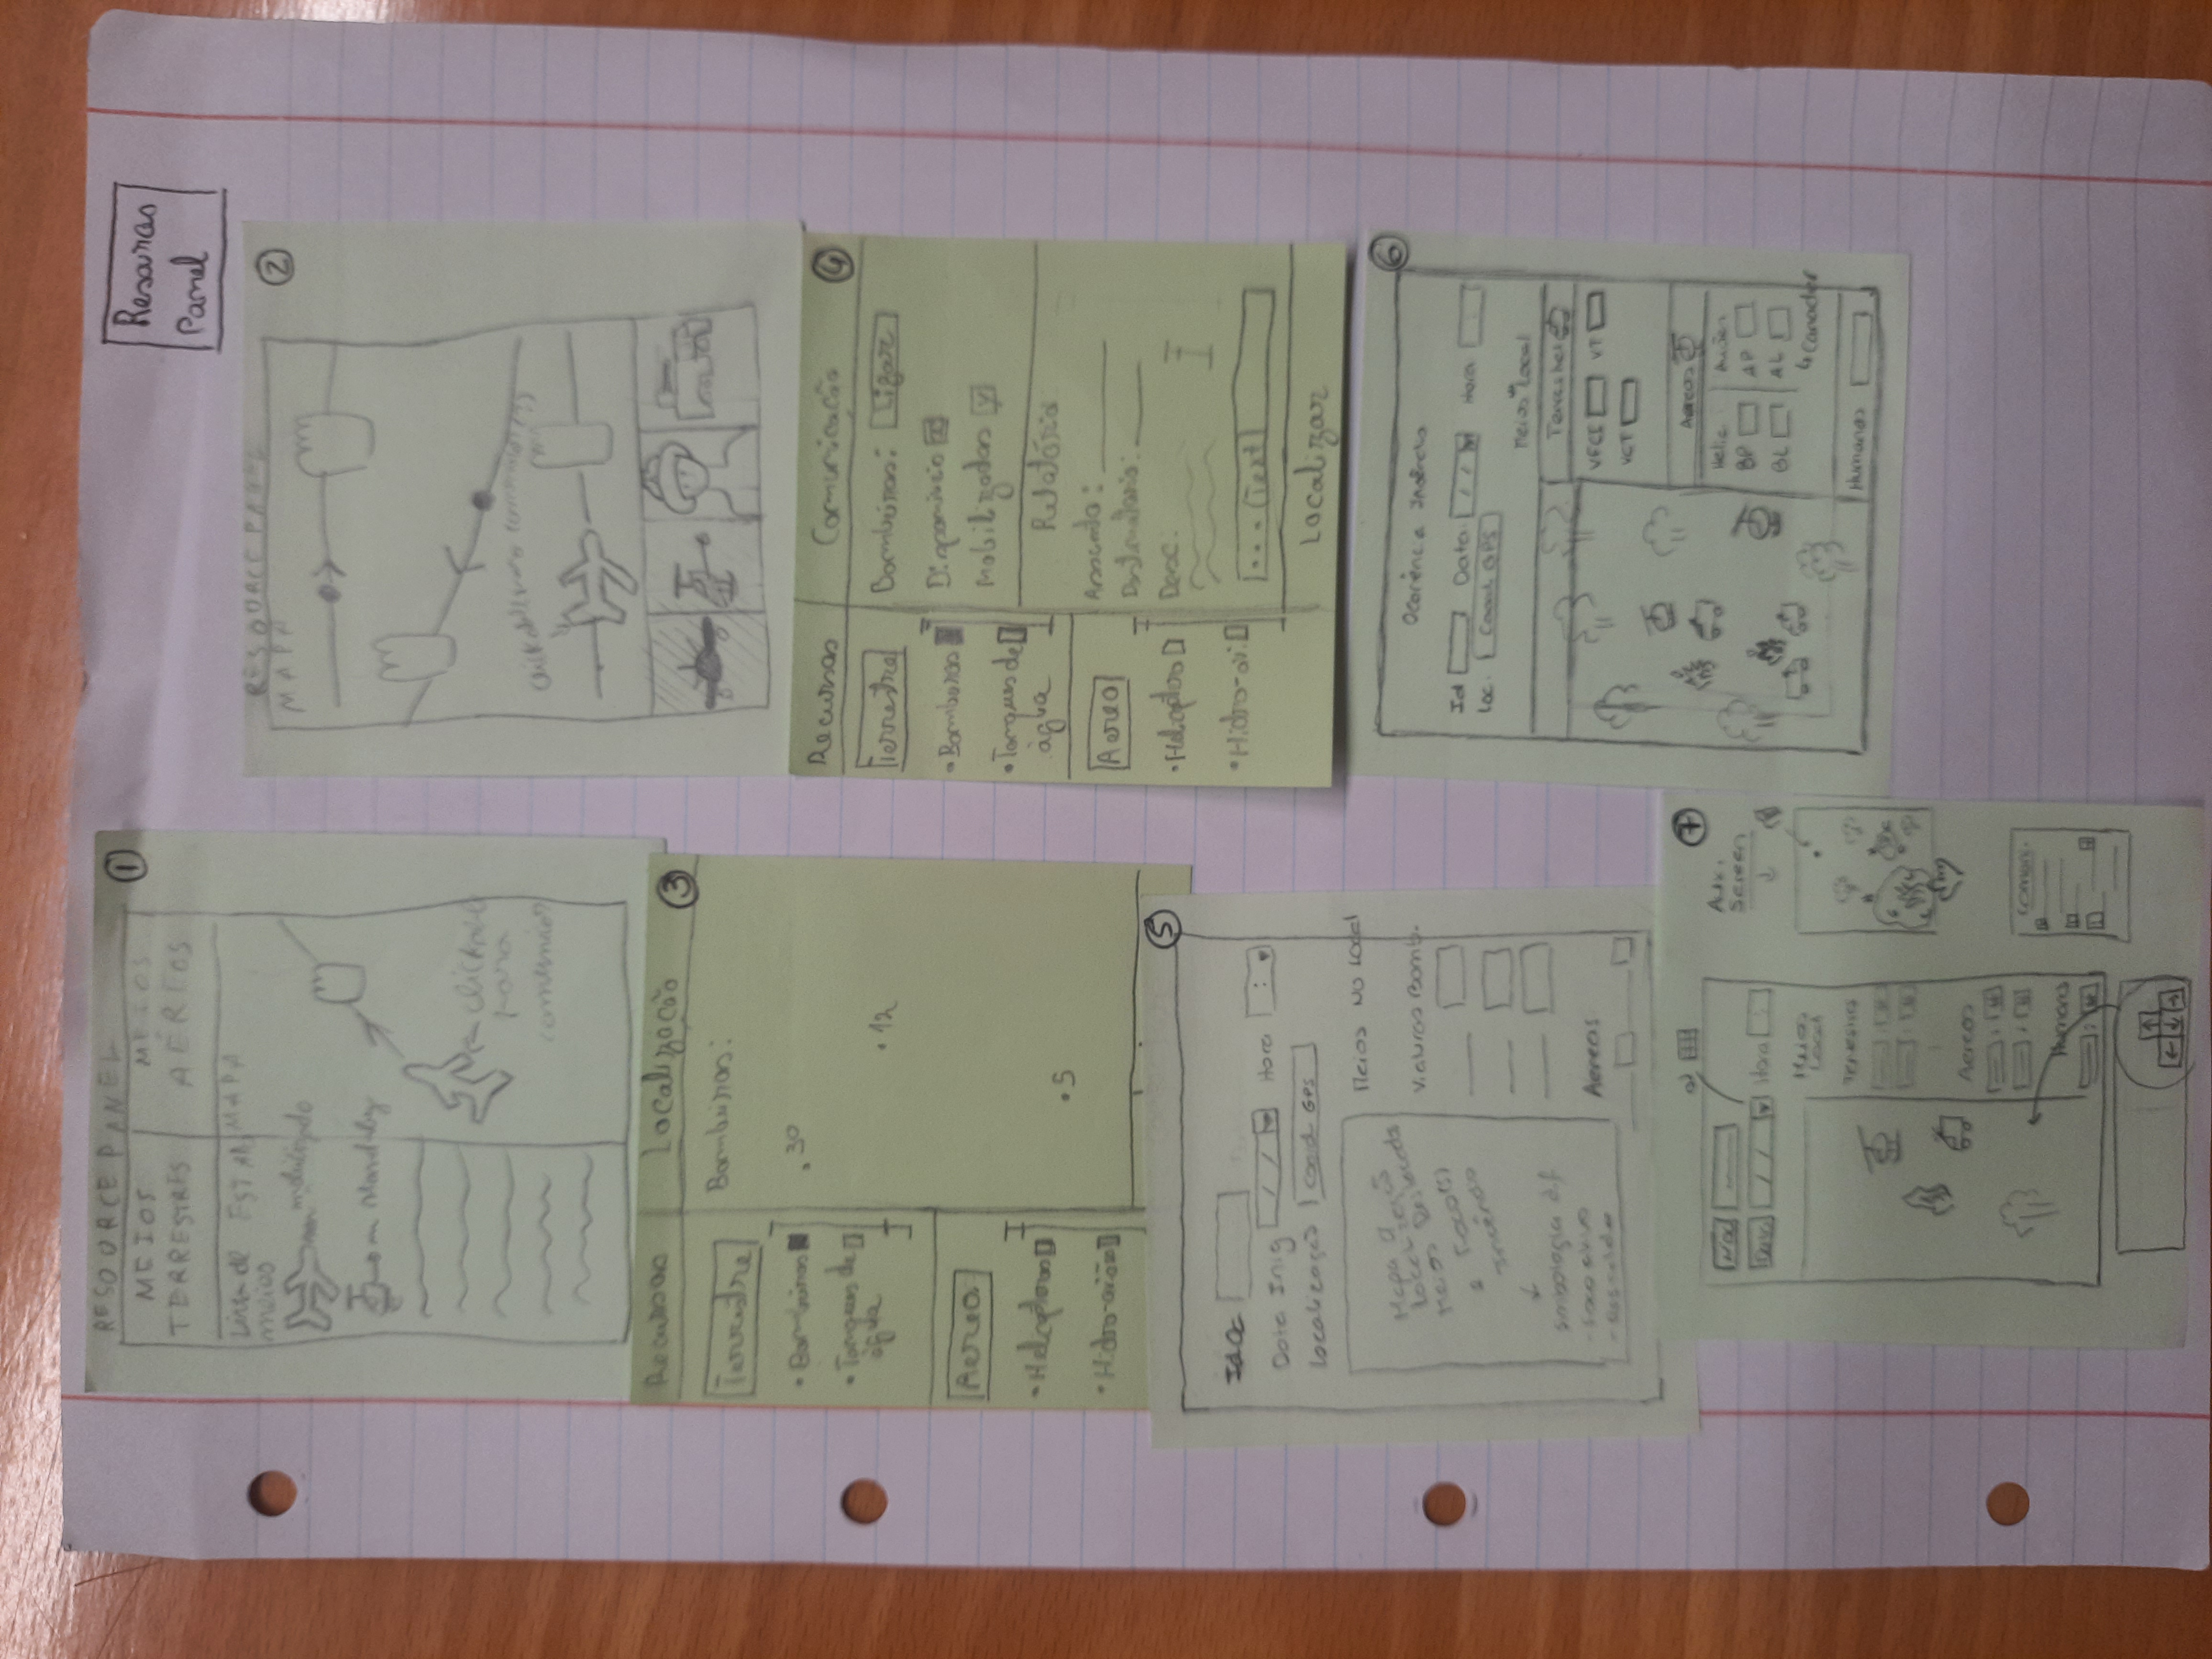 Resources
Panel
1
RESOURCE PANEL
MEIOS
TERRESTRES
MEIOS
AÉREOS
Lista de
meios
MAPA
mobilizado
Standby
clickable
para
2
RESOURCE PANEL
MAPA
3
Recursos
Localização
Terrestre
• Bombeiros
• Tanques de
água
Bombeiros:
. 30
. 12
. 5
Aereo
• Helicópteros
• Hidro-avião
4
Recursos
Comunicação
Terrestre
• Bombeiros
• Tanques de
água
Aereo
• Helicóptero
• Hidro-avi.
Bombeiros: Ligar
Disponíveis x
Mobilizados y
Relatório
Assunto:
Destinatário:
Desc.
... (Text)
Localizar
5
Id Oc
Data Inig / / Hora :
Localização Coord GPS
Mapa c/
Localização
Meios Deslocados
e Foco(s)
Incêndio
Simbologia dif
- Foco ativo
- Rescaldo
Meios No Local
Viaturas Bomb.
Aereos
6
Ocorência Incêndio
Id Data: / / Hora
Loc. Coord GPS
Meios Local
Terrestres
VFCI VT
VCT
Aereos
Helic.
BP
BL
Aviões
AP
AL
↳ Canadair
Humanos
7
a)
Data / / Hora :
Meios
Local
Terrestres
Aereos
Humanos
Aux.
Screen
↓
Comuni.
↑
← ↓ →